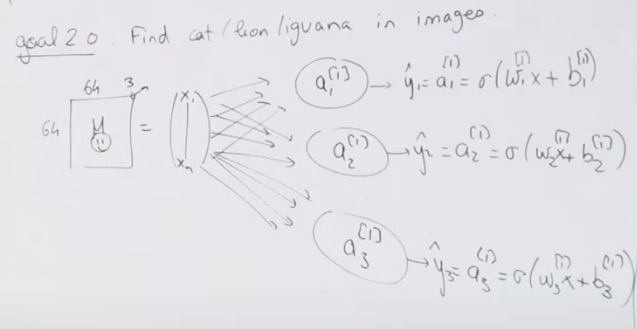 goal 2.0 : Find cat/lion/iguana in images.
64 3
64 = (x₁ xₙ)
a₁^[1] → ŷ₁ = a₁^[1] = σ(w₁^[1]x + b₁^[1])
a₂^[1] → ŷ₂ = a₂^[1] = σ(w₂^[1]x + b₂^[1])
a₃^[1] → ŷ₃ = a₃^[1] = σ(w₃^[1]x + b₃^[1])